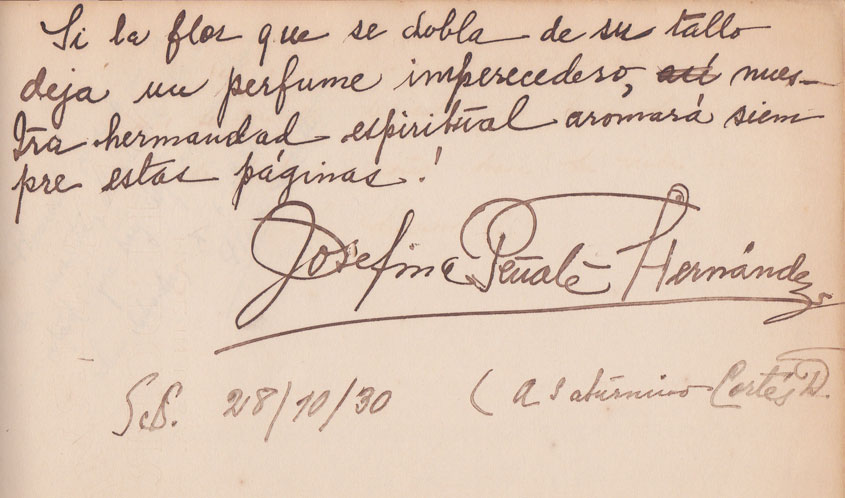 Si la flor que se dobla de su tallo
deja un perfume imperecedero, así nues-
tra hermandad espiritual aromará siem
pre estas páginas!
Josefina Peñate Hernández
S.S. 28/10/30 (A Saturnino Cortés D.